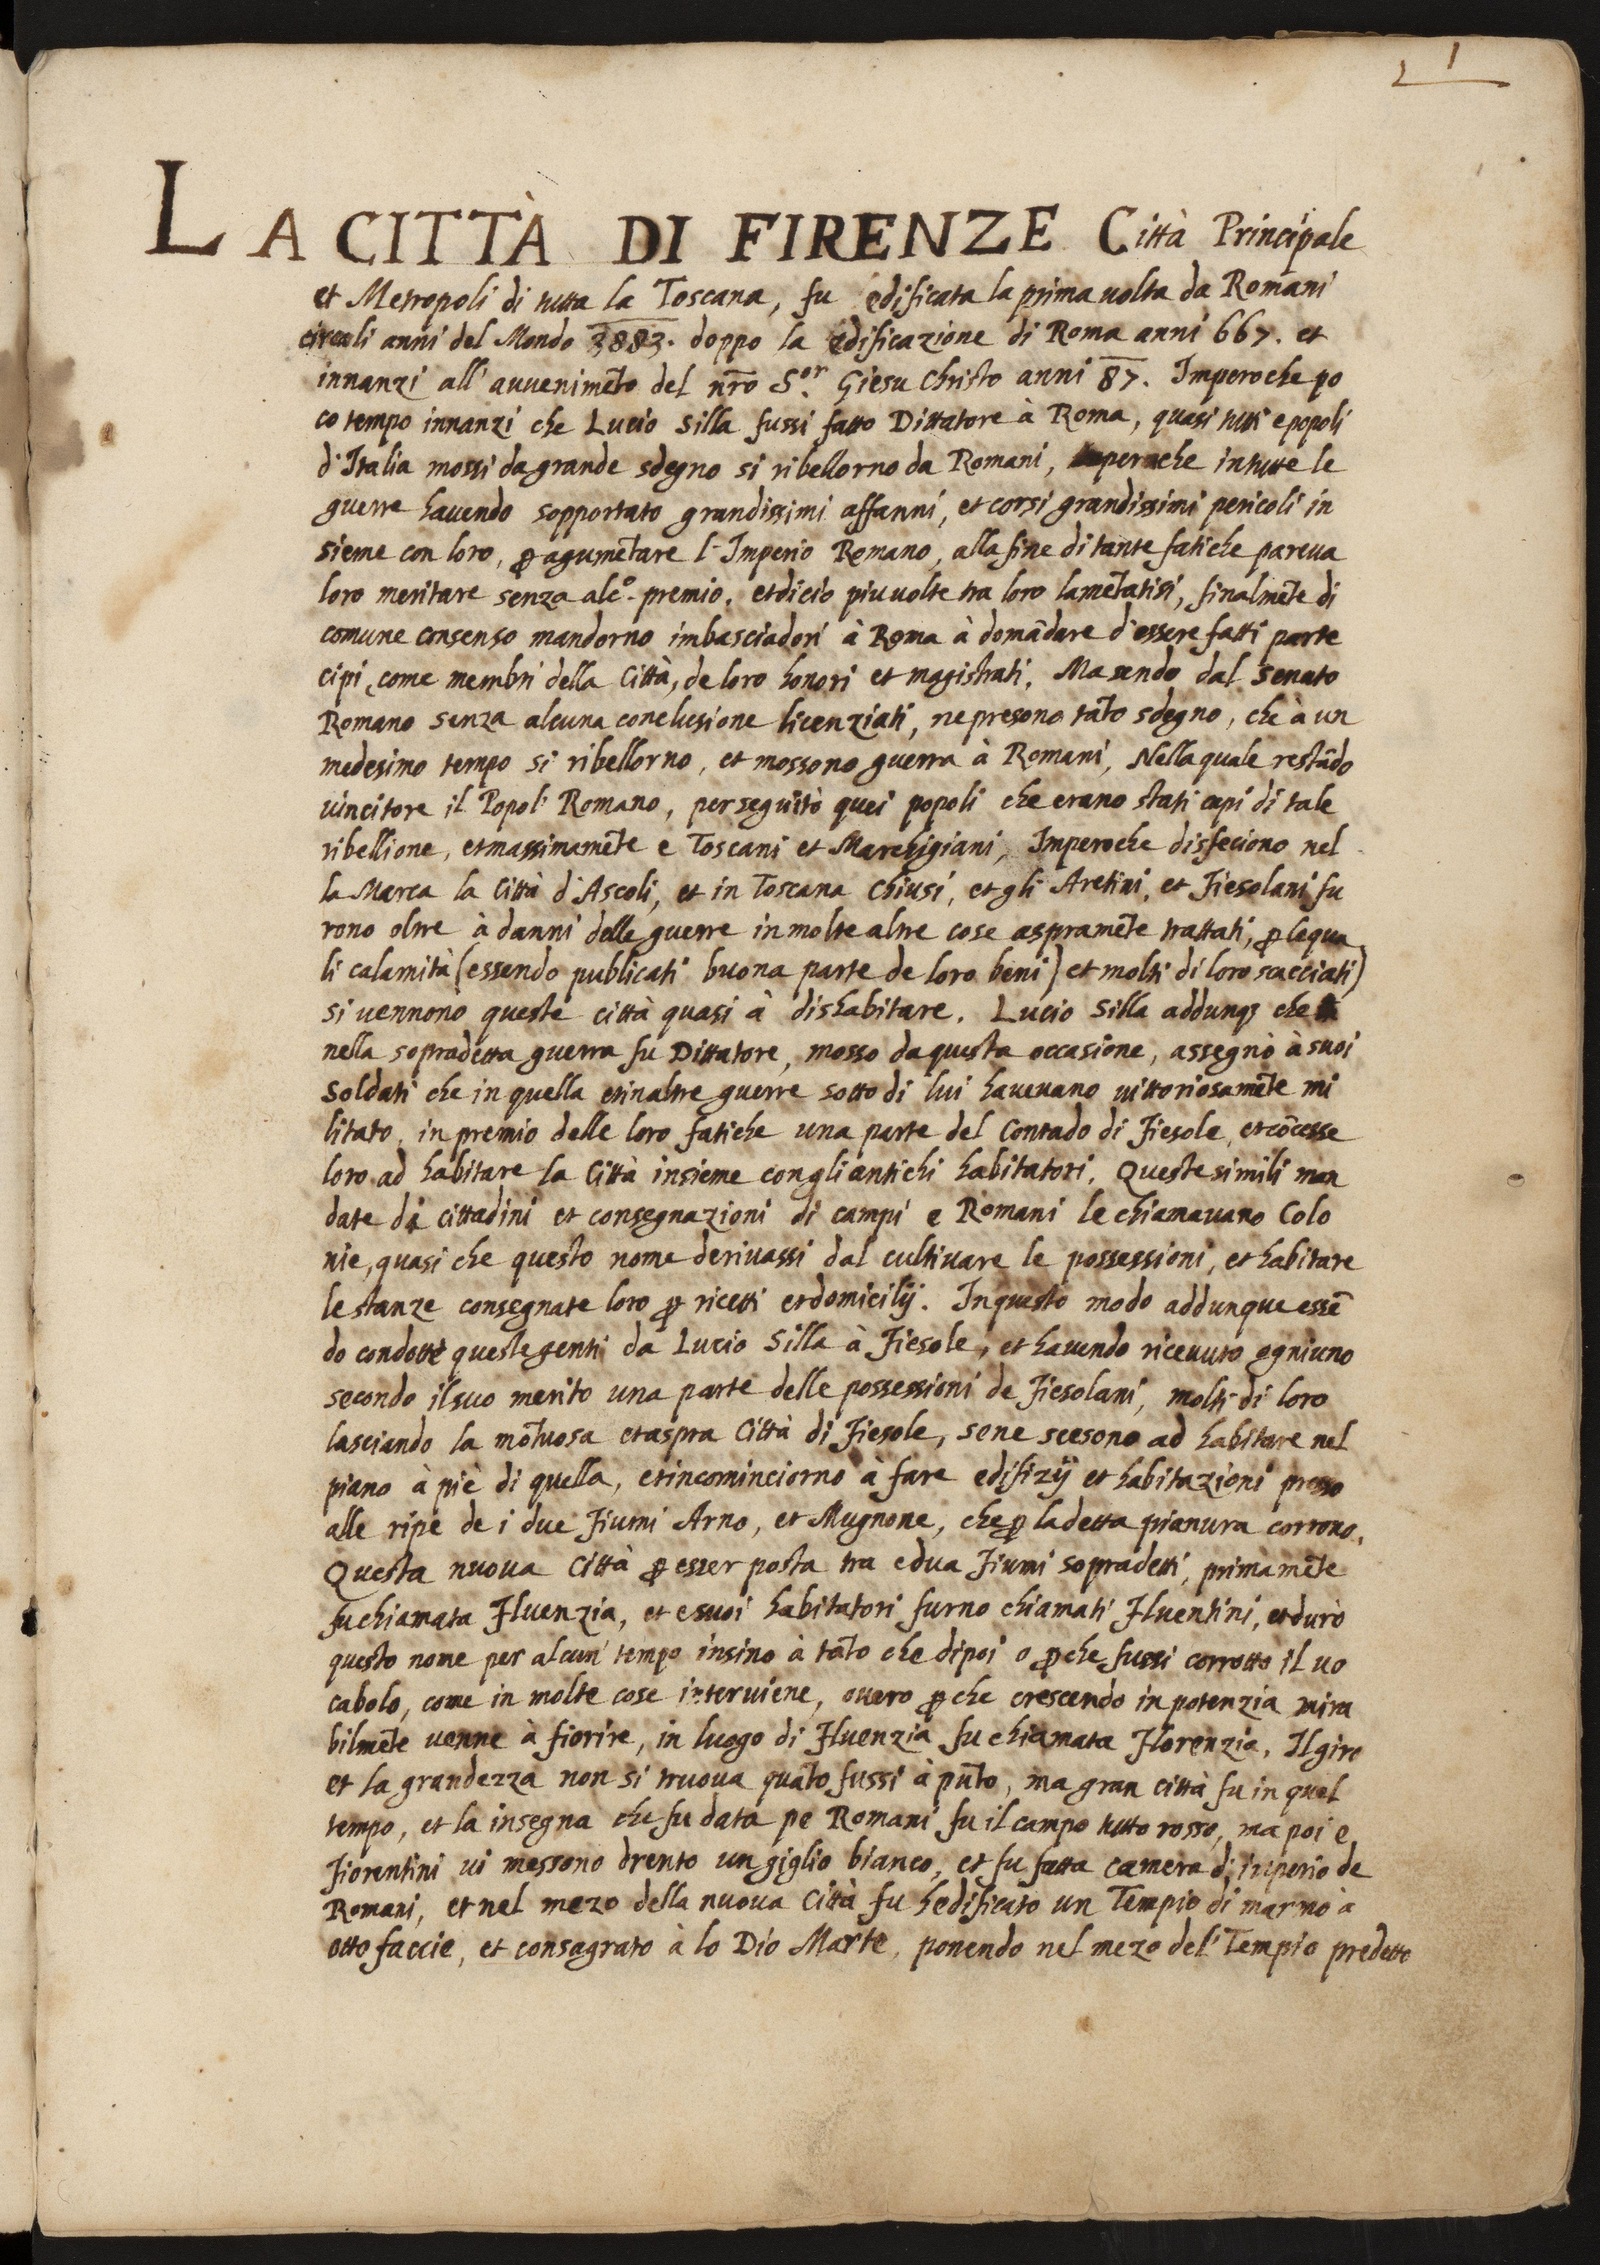 1
LA CITTÀ DI FIRENZE Città Principale
et Metropoli di tutta la Toscana, fu edificata la prima uolta da Romani
circali anni del Mondo 3883. doppo la edificazione di Roma anni 667. et
innanzi all' auuenimẽto del nr̃o S.or Giesu Christo anni 87. Imperoche po
co tempo innanzi che Lucio Silla fussi fatto Dittatore à Roma, quasi tutti e popoli
d'Italia mossi da grande sdegno si ribellorno da Romani, Imperoche in tutte le
guerre hauendo sopportato grandissimi affanni, et corsi grandissimi pericoli in
sieme con loro, ꝑ agumẽtare l'Imperio Romano, alla fine di tante fatiche pareua
loro meritare senza alc.o premio. et di cio piu uolte tra loro lamẽtatisi, finalmẽte di
comune consenso mandorno imbasciadori à Roma à domãdare d'essere fatti parte
cipi, come membri della Città, de loro honori et magistrati. Ma sendo dal Senato
Romano senza alcuna conclusione licenziati, ne presono tãto sdegno, che à un
medesimo tempo si ribellorno, et mossono guerra à Romani, Nella quale restãdo
uincitore il Popol' Romano, perseguitò quei popoli che erano stati capi di tale
ribellione, et massimamẽte e Toscani et Marchigiani, Imperoche disfeciono nel
la Marca la Città d'Ascoli, et in Toscana Chiusi, et gli Aretini, et Fiesolani fu
rono oltre à danni delle guerre in molte altre cose aspramẽte trattati, ꝑ le qua
li calamità (essendo publicati buona parte de loro beni) et molti di loro scacciati)
si uennono queste città quasi à dishabitare. Lucio Silla addunqꝫ che
nella sopradetta guerra fu Dittatore, mosso da questa occasione, assegnò à suoi
Soldati che in quella et in altre guerre sotto di lui haueuano uittoriosamẽte mi
litato, in premio delle loro fatiche una parte del Contado di Fiesole, et cõcesse
loro ad habitare la Città insieme con gli antichi habitatori. Queste simili man
date di cittadini et consegnazioni di campi e Romani le chiamauano Colo
nie, quasi che questo nome deriuassi dal cultiuare le possessioni, et habitare
le stanze consegnate loro ꝑ ricetti et domicilij. In questo modo addunque essẽ
do condotte queste genti da Lucio Silla à Fiesole, et hauendo riceuuto ogniuno
secondo il suo merito una parte delle possessioni de Fiesolani, molti di loro
lasciando la mõtuosa et aspra Città di Fiesole, se ne scesono ad habitare nel
piano à piè di quella, et incominciorno à fare edifizij et habitazioni presso
alle ripe de i due Fiumi Arno, et Mugnone, che ꝑ la detta pianura corrono.
Questa nuoua Città ꝑ esser posta tra e dua Fiumi sopradetti, primamẽte
fu chiamata Fluenzia, et e suoi habitatori furno chiamati Fluentini, et durò
questo nome per alcun' tempo insino à tãto che dipoi o ꝑche fussi corrotto il uo
cabolo, come in molte cose interuiene, ouero ꝑche crescendo in potenzia mira
bilmẽte uenne à fiorire, in luogo di Fluenzia fu chiamata Florenzia. Il giro
et la grandezza non si truoua quãto fussi à pũto, ma gran città fu in quel
tempo, et la insegna che fu data pe Romani fu il campo tutto rosso, ma poi e
Fiorentini ui messono drento un giglio bianco, et fu fatta camera d'imperio de
Romani, et nel mezo della nuoua Città fu hedificato un Tempio di marmo à
otto faccie, et consagrato à lo Dio Marte, ponendo nel mezo del' Tempio predetto